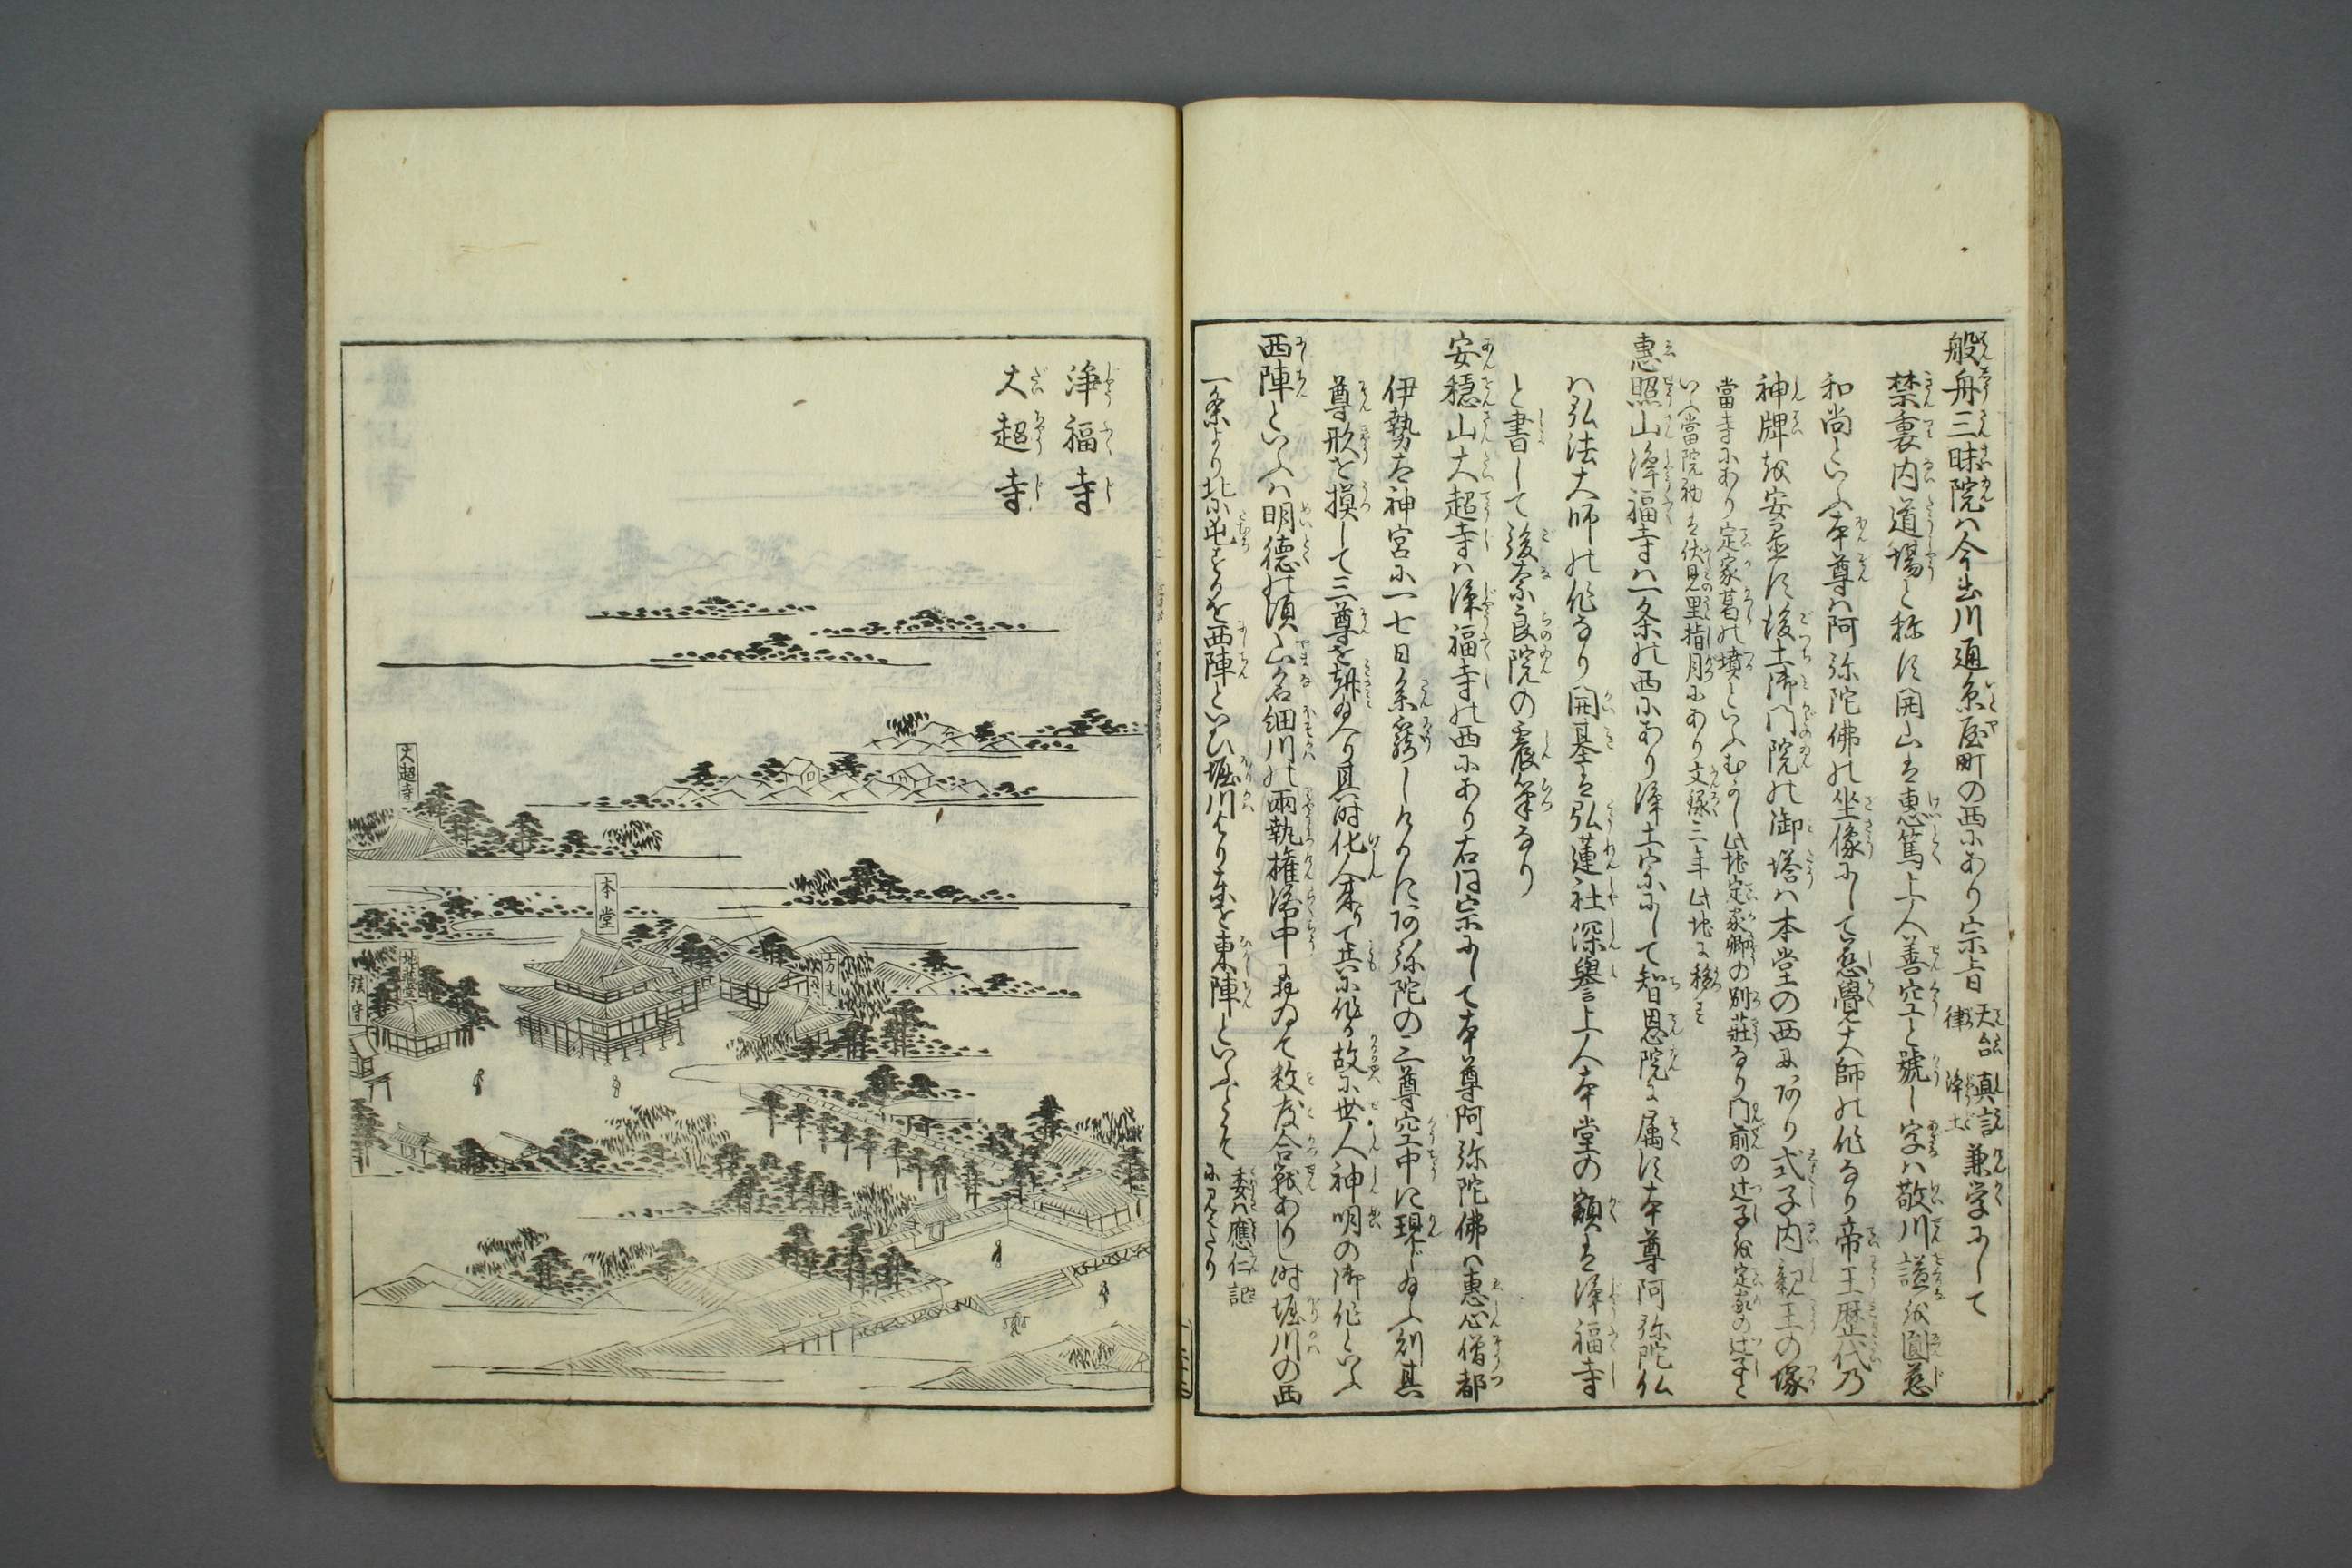 般舟三昧院ハ今出川通糸屋町の西にあり宗旨天台律真言浄土兼学にして
禁裏内道場と称に開山は恵篤上人善空と號し字ハ敬川謚を圓慈
和尚といふ本尊ハ阿弥陀佛の坐像にして慈覺大師の作なり帝王歴代乃
神牌を安置に後土御門院の御塔ハ本堂の西にあり式子内親王の塚
當寺にあり定家葛の墳といふむかし此地定家卿の別荘なり門前の辻子を定家の辻子と
いふ當院初は伏見里指月にあり文禄三年此地に移す
惠照山浄福寺ハ一条の西にあり浄土宗にして智恩院に属に本尊阿弥陀仏
ハ弘法大師の作なり開基は弘蓮社深譽上人本堂の額は浄福寺
と書して後奈良院の震筆なり
安穏山大超寺ハ浄福寺の西にあり右同宗にして本尊阿弥陀佛ハ惠心僧都
伊勢太神宮に一七日参籠しけるに阿弥陀の三尊空中に現じ給ふ則其
尊形を摸して三尊を刻給へり其時化人来りて共に作る故に世人神明の御作といふ
西陣といふハ明徳の頃山名細川の両執権洛中において数度合戦ありし時堀川の西
一条より北に屯せるを西陣といひ堀川より東を東陣といふとぞ委ハ應仁記に見へたり
浄福寺
大超寺
大超寺
本堂
方丈
地蔵堂
鎮守